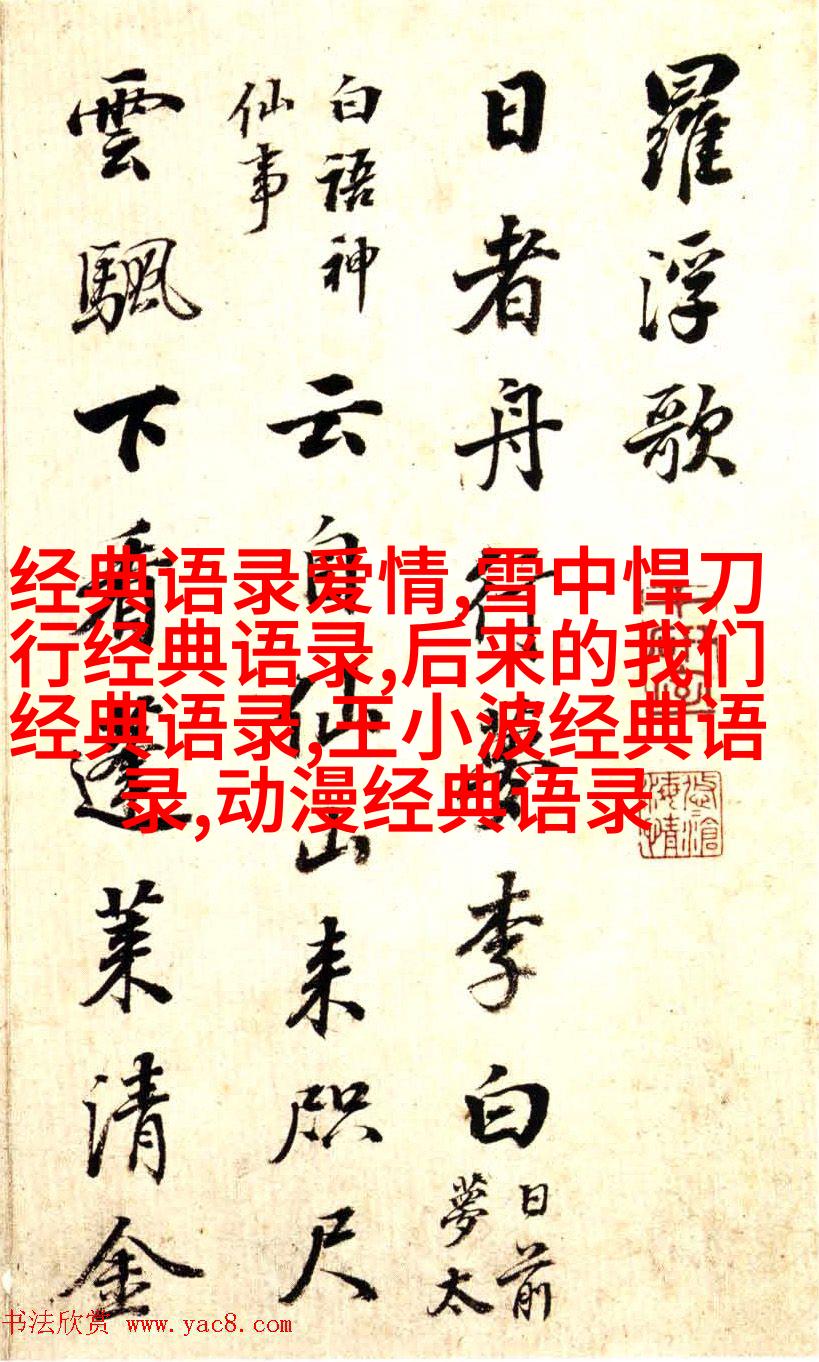 羅浮歌
日者舟行夢李白
日前
夢太
白語神
仙事
云自仙山来咫尺
雲颿下看蓬莱清金
经典语录爱情,雪中悍刀
行经典语录,后来的我们
经典语录,王小波经典语
录,动漫经典语录
书法欣赏 www.yac8.com